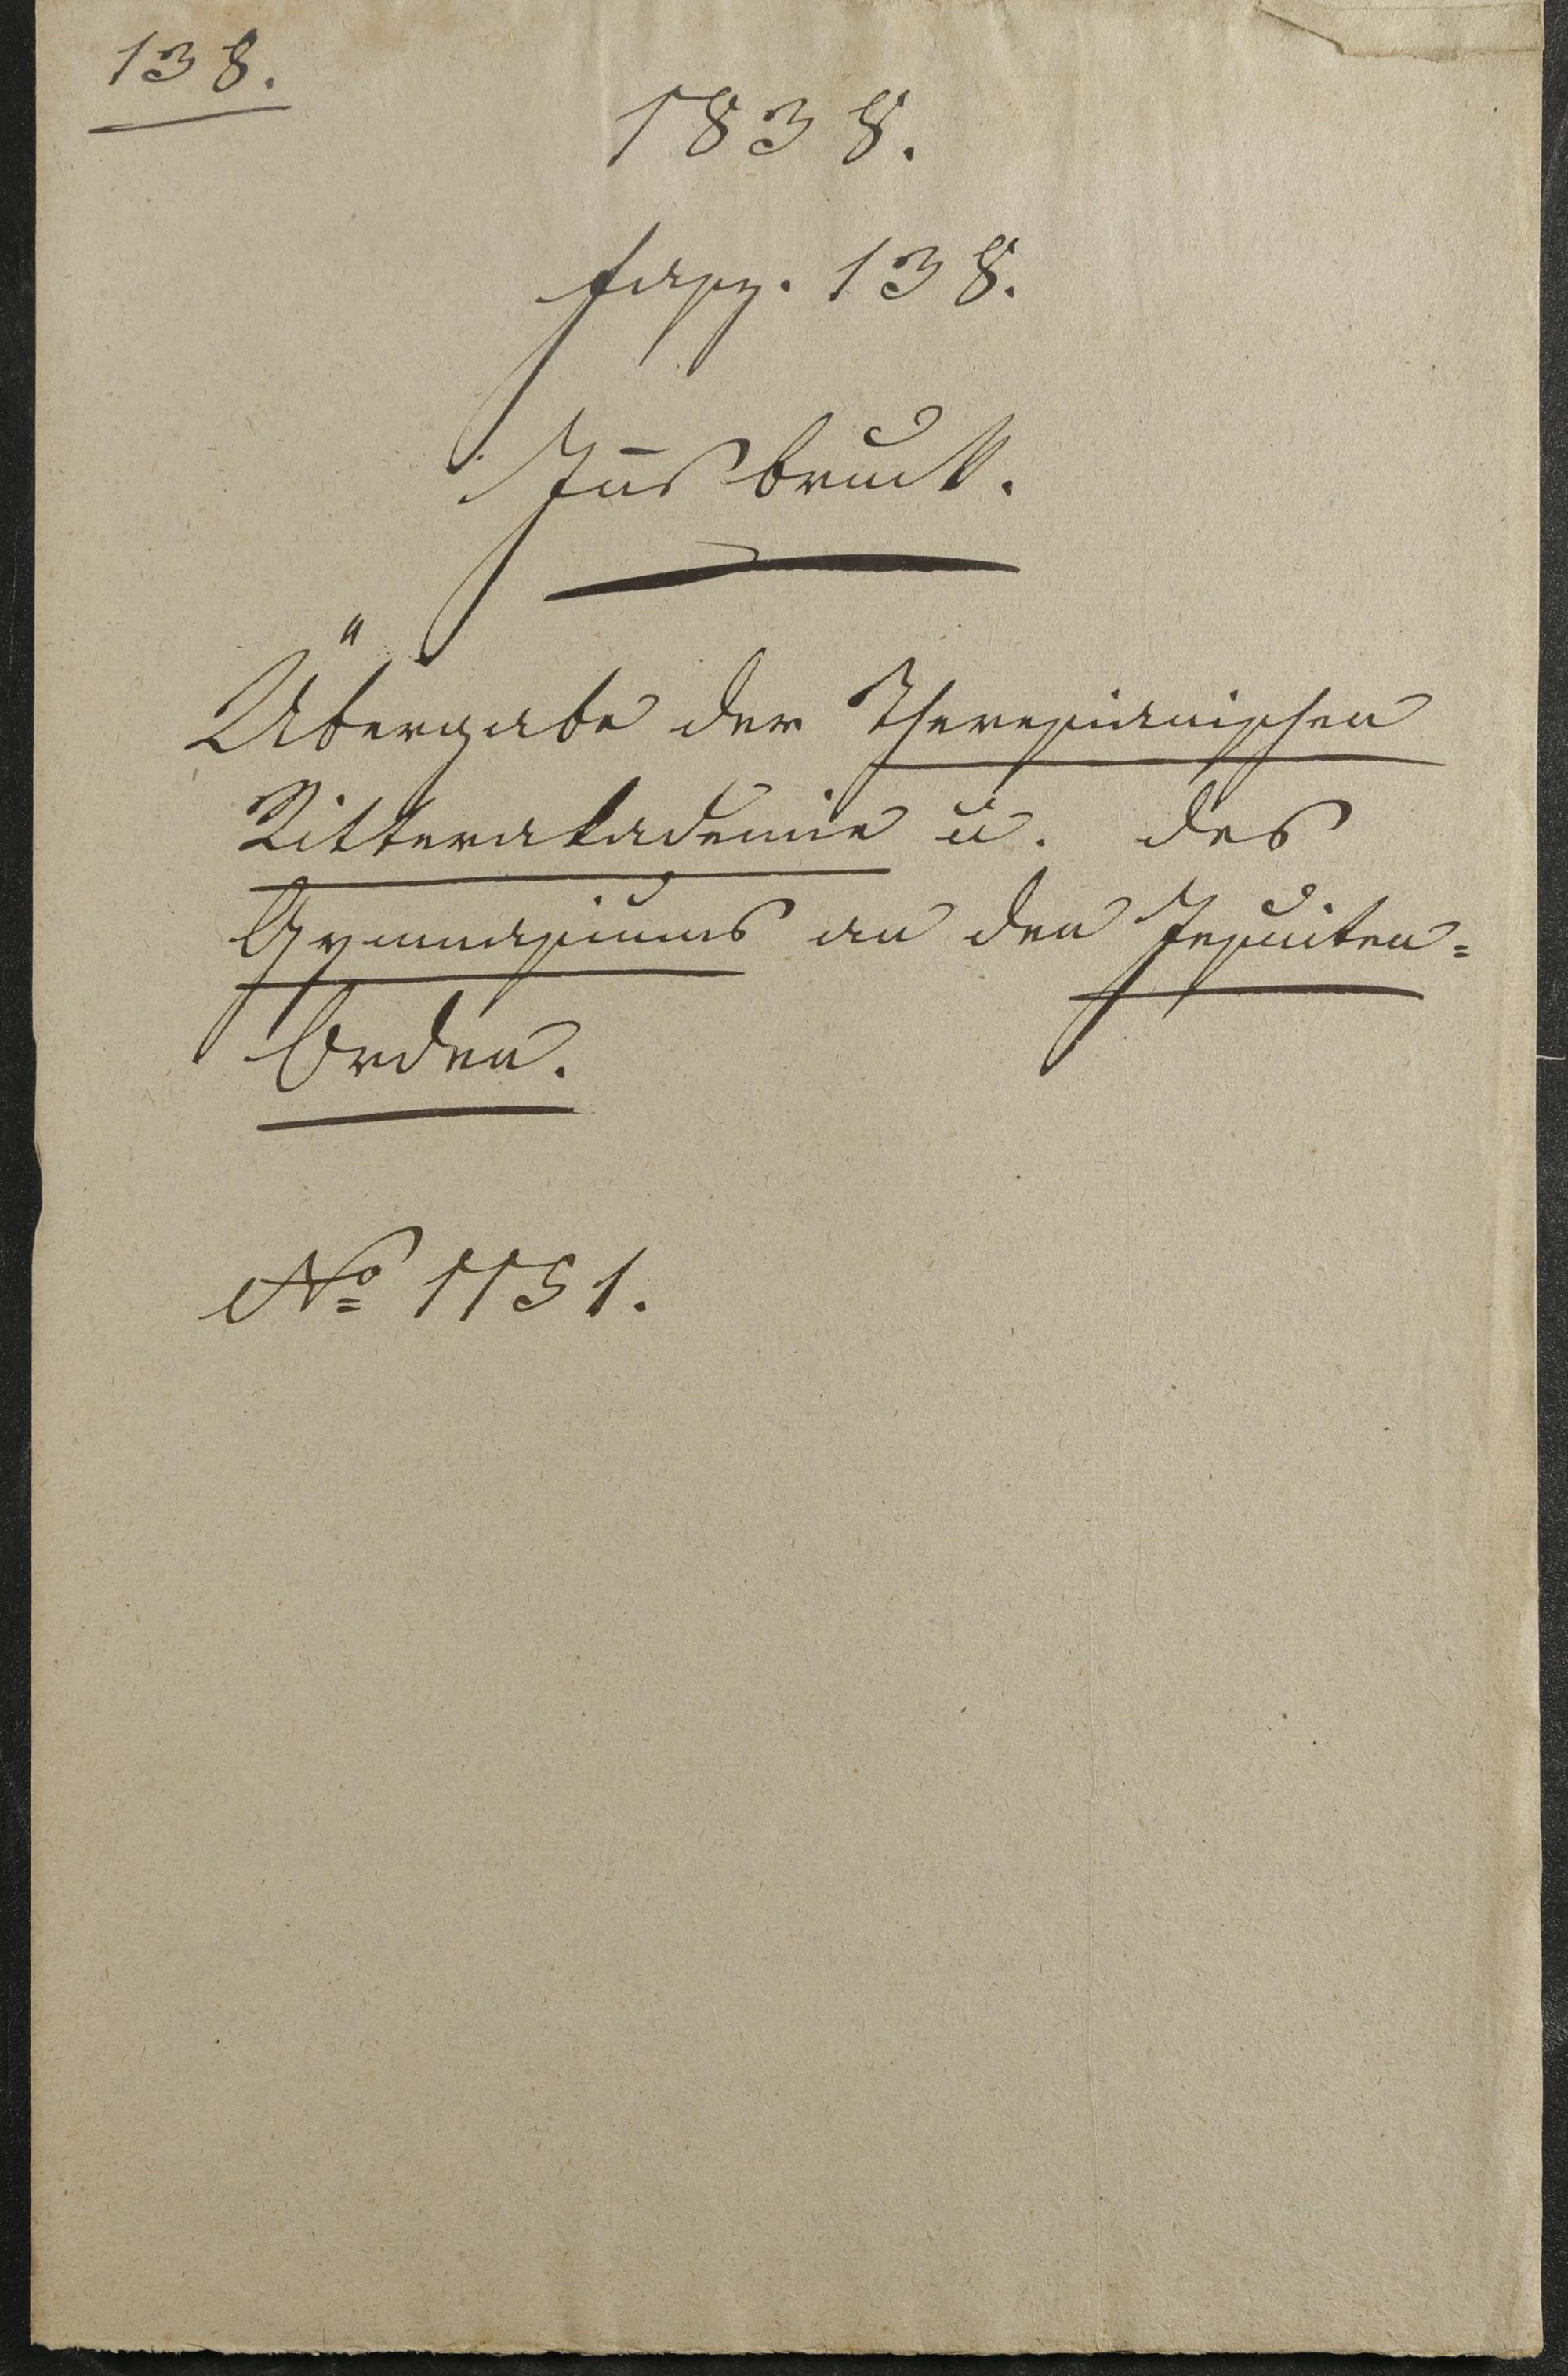 138.
1838.
fasz. 138.
Iñsbruck.
Übergabe der Theresianischen
Ritterakademie u. des
Gymnasiums an den Jesuiten=
Orden.
No 1151.